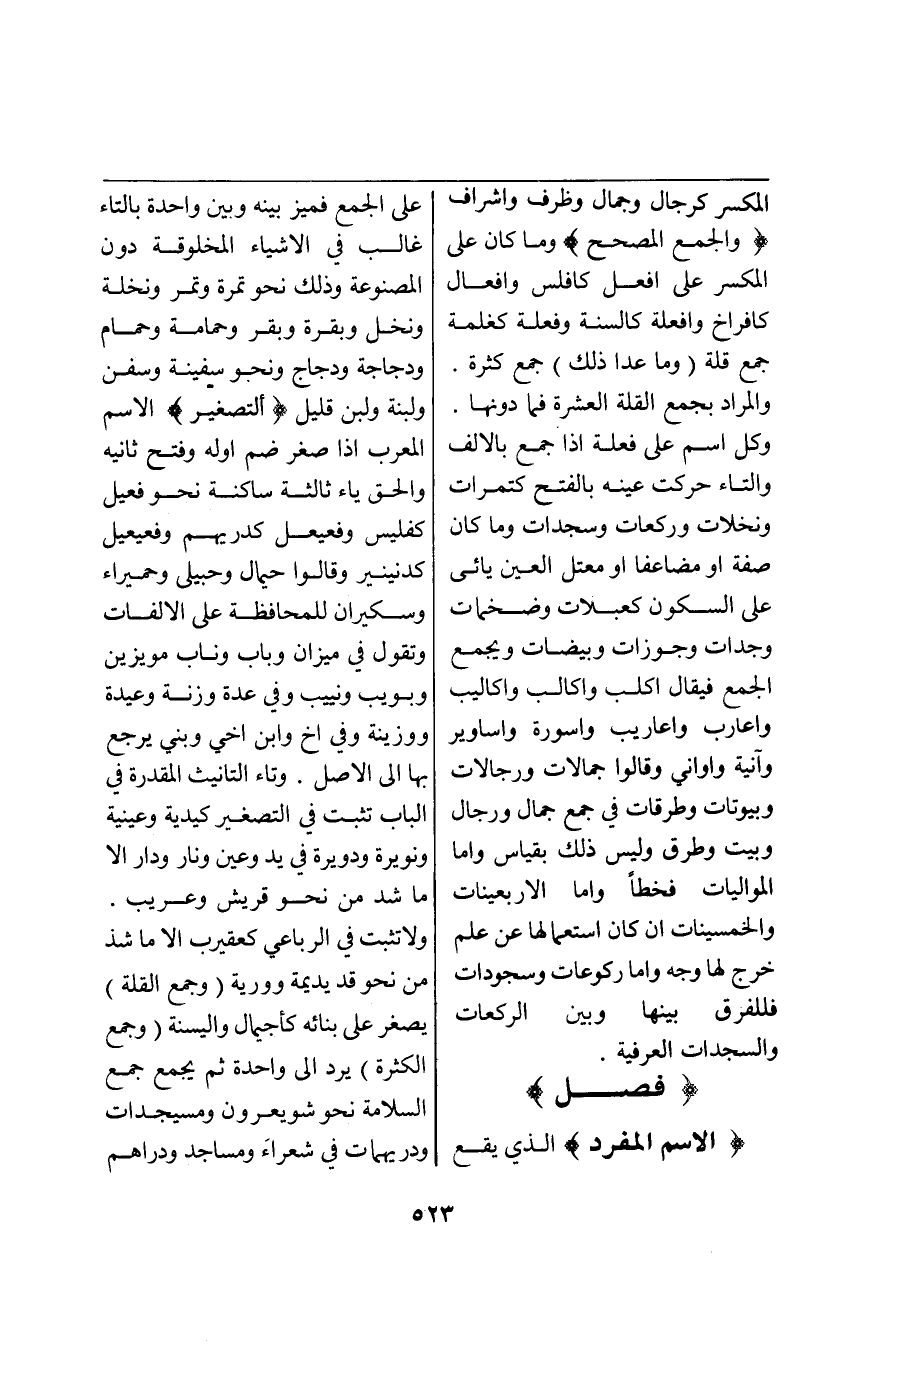 المكسر كرجال وجمال وظرف واشراف
﴿ والجمع المصحح ﴾ وما كان على
المكسر على افعل كافلس وافعال
كافراخ وافعلة كالسنة وفعلة كغلمة
جمع قلة ( وما عدا ذلك ) جمع كثرة .
والمراد بجمع القلة العشرة فما دونها .
وكل اسم على فعلة اذا جمع بالالف
والتاء حركت عينه بالفتح كتمرات
ونخلات وركعات وسجدات وما كان
صفة او مضاعفا او معتل العين يائى
على السكون كعبلات وضخمات
وجدات وجوزات وبيضات ويجمع
الجمع فيقال اكلب واكالب واكاليب
واعارب واعاريب واسورة واساوير
وآنية واواني وقالوا جمالات ورجالات
وبيوتات وطرقات في جمع جمال ورجال
وبيت وطرق وليس ذلك بقياس واما
المواليات فخطأ واما الاربعينات
والخمسينات ان كان استعمالها عن علم
خرج لها وجه واما ركوعات وسجودات
فللفرق بينها وبين الركعات
والسجدات العرفية .
﴿ فصل ﴾
﴿ الاسم المفرد ﴾ الذي يقع
على الجمع فميز بينه وبين واحدة بالتاء
غالب في الاشياء المخلوقة دون
المصنوعة وذلك نحو تمرة وتمر ونخلة
ونخل وبقرة وبقر وحمامة وحمام
ودجاجة ودجاج ونحو سفينة وسفن
ولبنة ولبن قليل ﴿ ألتصغير ﴾ الاسم
المعرب اذا صغر ضم اوله وفتح ثانيه
والحق ياء ثالثة ساكنة نحو فعيل
كفليس وفعيعل كدريهم وفعيعيل
كدنينير وقالوا حيمال وحبيلى وحميراء
وسكيران للمحافظة على الالفات
وتقول في ميزان وباب وناب مويزين
وبويب ونييب وفي عدة وزنة وعيدة
ووزينة وفي اخ وابن اخي وبني يرجع
بها الى الاصل . وتاء التانيث المقدرة في
الباب تثبت في التصغير كيدية وعينية
ونويرة ودويرة في يد وعين ونار ودار الا
ما شد من نحو قريش وعريب .
ولاتثبت في الرباعي كعقيرب الا ما شذ
من نحو قد يديمة وورية ( وجمع القلة )
يصغر على بنائه كأجيمال واليسنة ( وجمع
الكثرة ) يرد الى واحدة ثم يجمع جمع
السلامة نحو شويعرون ومسيجدات
ودريهمات في شعراء ومساجد ودراهم
٥٢٣